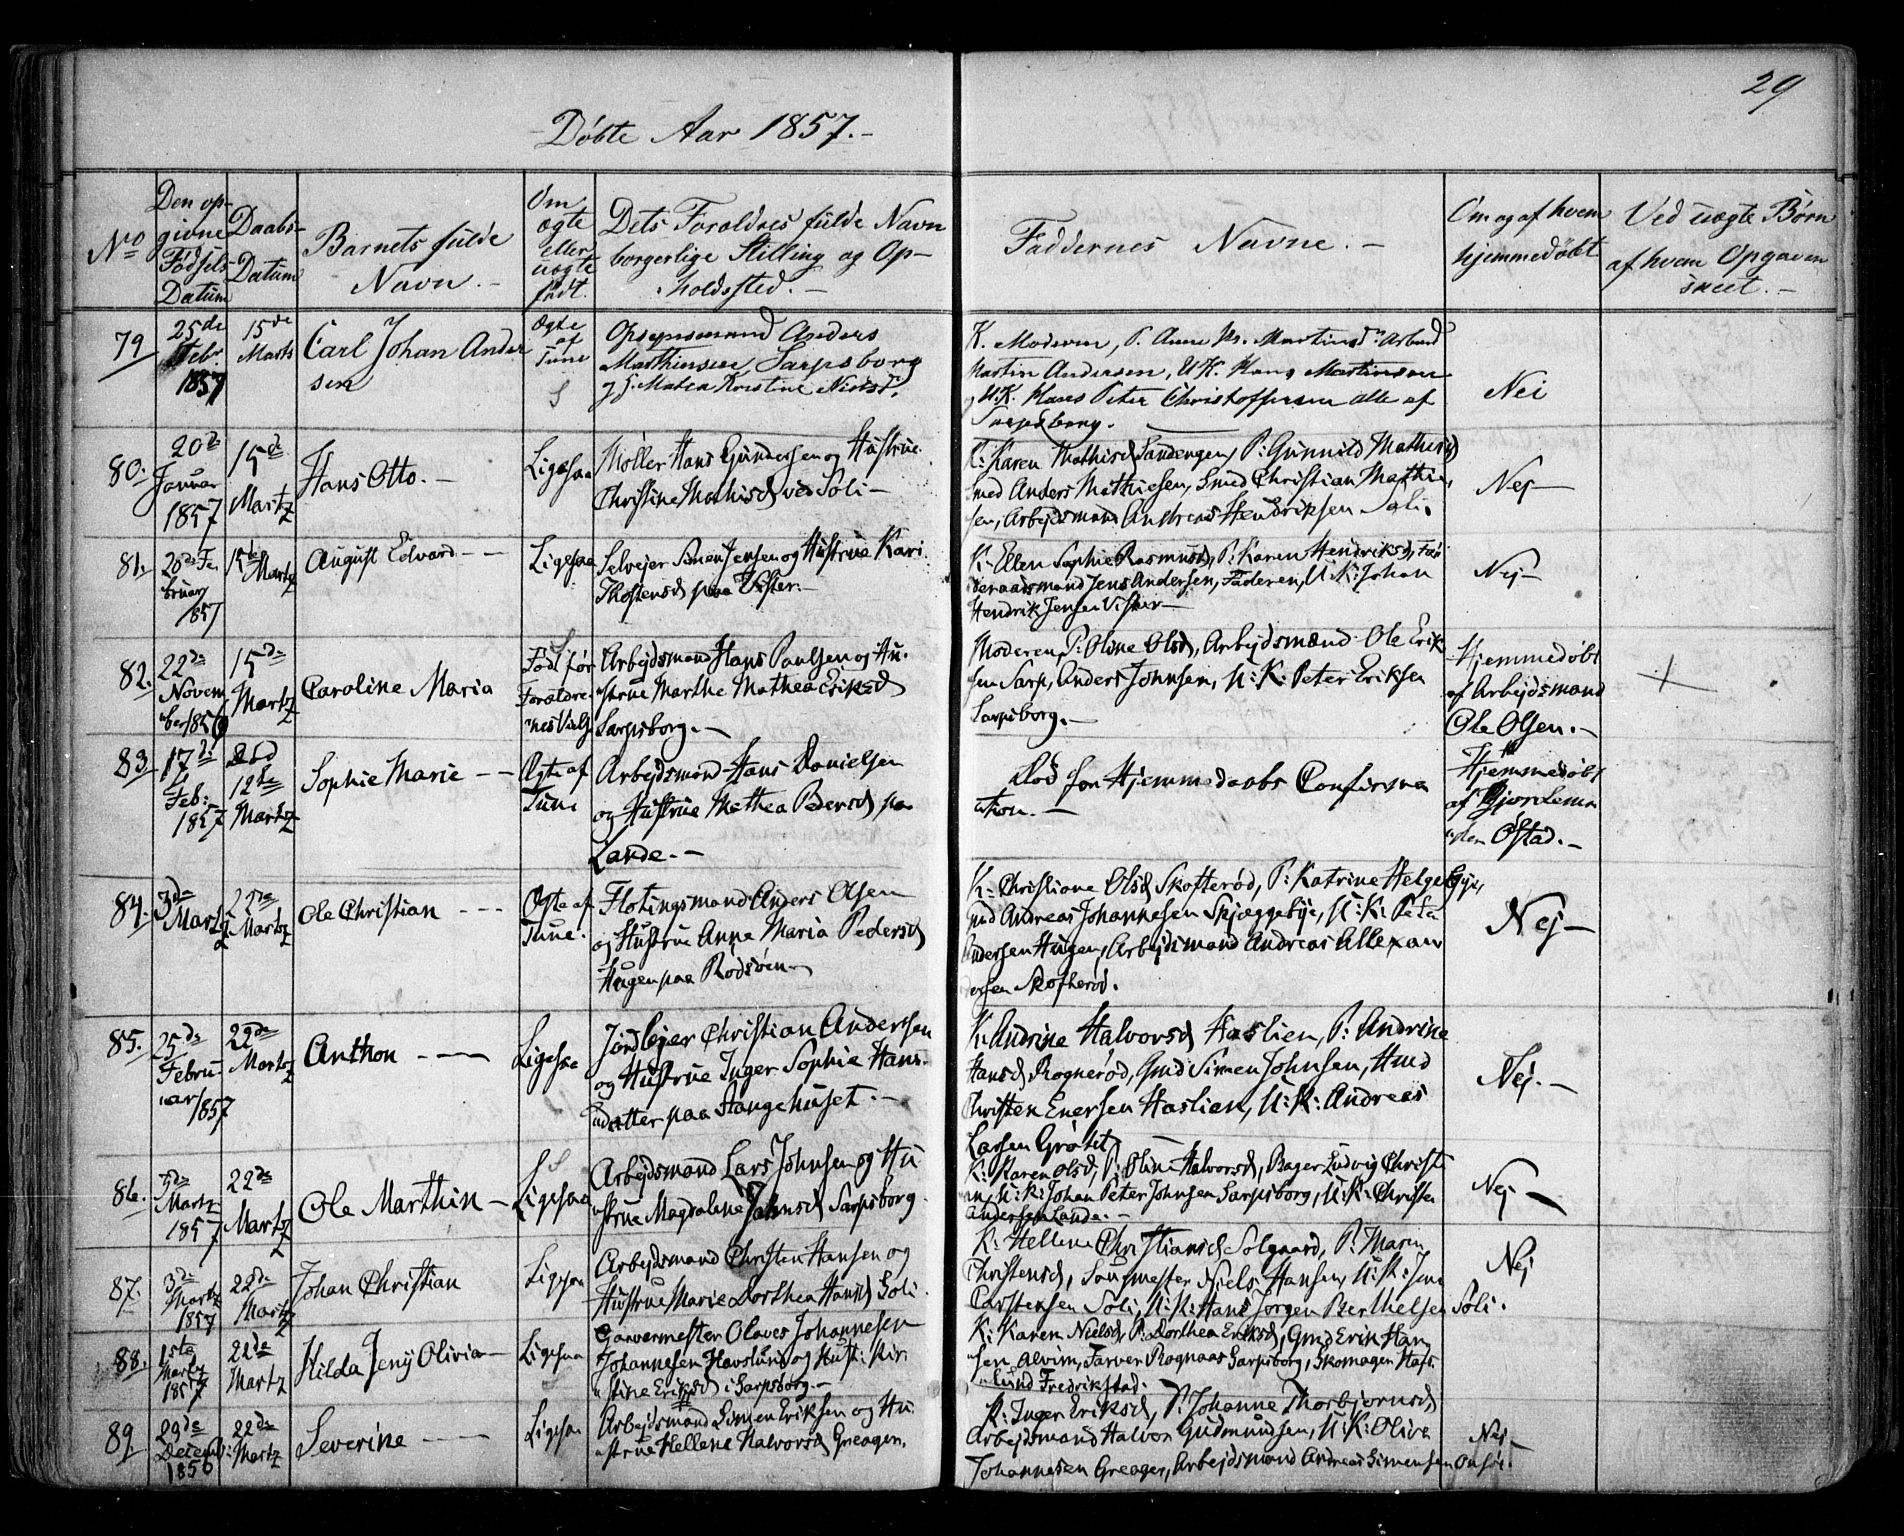 29
Døbte Aar 1857.
No
Den op-
givne
Fødsels-
Datum
Daabs-
Datum
Barnets fulde
Navn.
Om
ægte
eller
uægte
født.
Dets Foraldres fulde Navn
borgerlige Stilling og Op-
holdssted.
Faddernes Navne.
Om og af hvem
hjemmedøbt
Ved uægte Børn
af hvem Opgaven
skeet.
79
25de
Febr
1857
15de
Marts
Carl Johan Ander
sen
Ægte
af
Tune
Opsynsmand Anders
Marthinsen Sarpsborg
Matea Kristine Nielsd.
K. Moderen, P. Anne M. Martinsd. Arbmd
Martin Andersen, U.K. Hans Martinsen
U.K. Hans Peter Christoffersen alle af
Sarpsborg.
Nei
80.
20de
Januar
1857
15de
Martz
Hans Otto.
Ligesaa
Møller Hans Gundersen og Hustrue
Christine Mathisd ved Soli
K: Karen Mathisd Sandengen, P: Gunnild Mathisd
Smed Anders Mathiesen, Smed Christian Mathie
sen, Arbejdsmand Andreas Hendriksen Soli.
Nej
81.
20de Fe
bruar
1857
15de Martz
August Edvard
Ligesaa
Selvejer Simen Jensen og Hustrue Kari
Thostensd paa Vister.
K. Ellen Sophie Rasmusd, P: Karen Hendriksd, Fø
deraadsmand Jens Andersen, Faderen, U.K: Johan
Hendrik Jensen Vister
Nej
82.
22de
Novem
ber 1856
15de
Martz
Caroline Maria
Født før
Foraldre
nes Vielse
Arbejdsmand Hans Paulsen og Hu
strue Marthe Mathea Eriksd
Sarpsborg.
Moderen, P: Oline Olsd, Arbejdsmand Ole Erik
sen Sarp, Anders Johnsen, U: K: Peter Eriksen
Sarpsborg.
Hjemmedøbt
af Arbejdsmand
Ole Olsen.
83.
17de
Feb:
1857
Død
12te
Martz
Sophie Marie
Ægte af
Tune
Arbejdsmand Hans Danielsen
og Hustrue Mathea Pedersd paa
Lande.
Død før Hjemmedaabs Confirma
tion.
Hjemmedøbt
af Gjordemo
den Østad.
84.
3de
Martz
22de
Martz
Ole Christian
Ægte af
Tune.
Flotingsmand Anders Olsen
og Hustrue Anne Maria Pedersd
Haugen paa Rodsøen
K: Christiane Olsd Skofterød, P: Katrine Helgesd
Gmd Andreas Johannesen Skjæggebye, U:K: Peter
Andersen Hugen, Arbejdsmand Andreas Allexan
dersen Skofterød.
Nej
85.
25de
Febru
ar
1857
22de
Martz
Anthon
Ligesaa
Jordlejer Christian Anderssen
og Hustrue Inger Sophie Hans
datter paa Stangehuset.
K: Andrine Halvorsd Haslien, P: Andrine
Hansd Rognerød, Gmd Simen Johnsen, Hmd
Christen Enersen Haslien, U:K: Andreas
Larsen Grøtet
Nej.
86.
Martz
1857
22de
Martz
Ole Marthin
Ligesaa
Arbejdsmand Lars Johnsen og Hu
strue Magdalene Johnsd Sarpsborg
K: Karen Olsd, P: Oline Halvorsd, Bager Ludvig Christi
an, U:K: Johan Peter Johnsen Sarpsborg, U:K: Christen
Andersen Lande.
Nej
87.
3de
Martz
1857
22de
Martz
Johan Christian
Ligesaa
Arbejdsmand Christen Hansen og
Hustrue Marie Dorthea Hansd Soli.
K: Hellene Christiansd Solgaard, P: Maren
Christensd, Saugmester Niels Hansen, U:K: Jens
Carstensen Soli, U:K: Hans Jørgen Berthelsen Soli.
Nej
88.
1ste
Martz
1857
22de
Martz
Hilda Jeny Olivia
Ligesaa
Garvermester Olaves Johannesen
Johannesen Havslund og Hust: Kir
stine Eriksd i Sarpsborg.
K: Karen Nielsd, P: Dorthea Eriksd, Gmd Erik Han
sen Alvim, Farver Rognaas Sarpsborg, Skomager Hafs
lund Fredrikstad.
89
29de
Decemb:
1856
22de
Martz
Severine
Ligesaa
Arbejdsmand Simen Eriksen og Hu
strue Hellene Halvorsd Greager.
K: Inger Eriksd, P: Johanne Thorbjørnsd
Arbejdsmand Halvor Gudmundsen, U:K: Olive
Johannesen Greager, Arbejdsmand Andreas Simensen
Nej